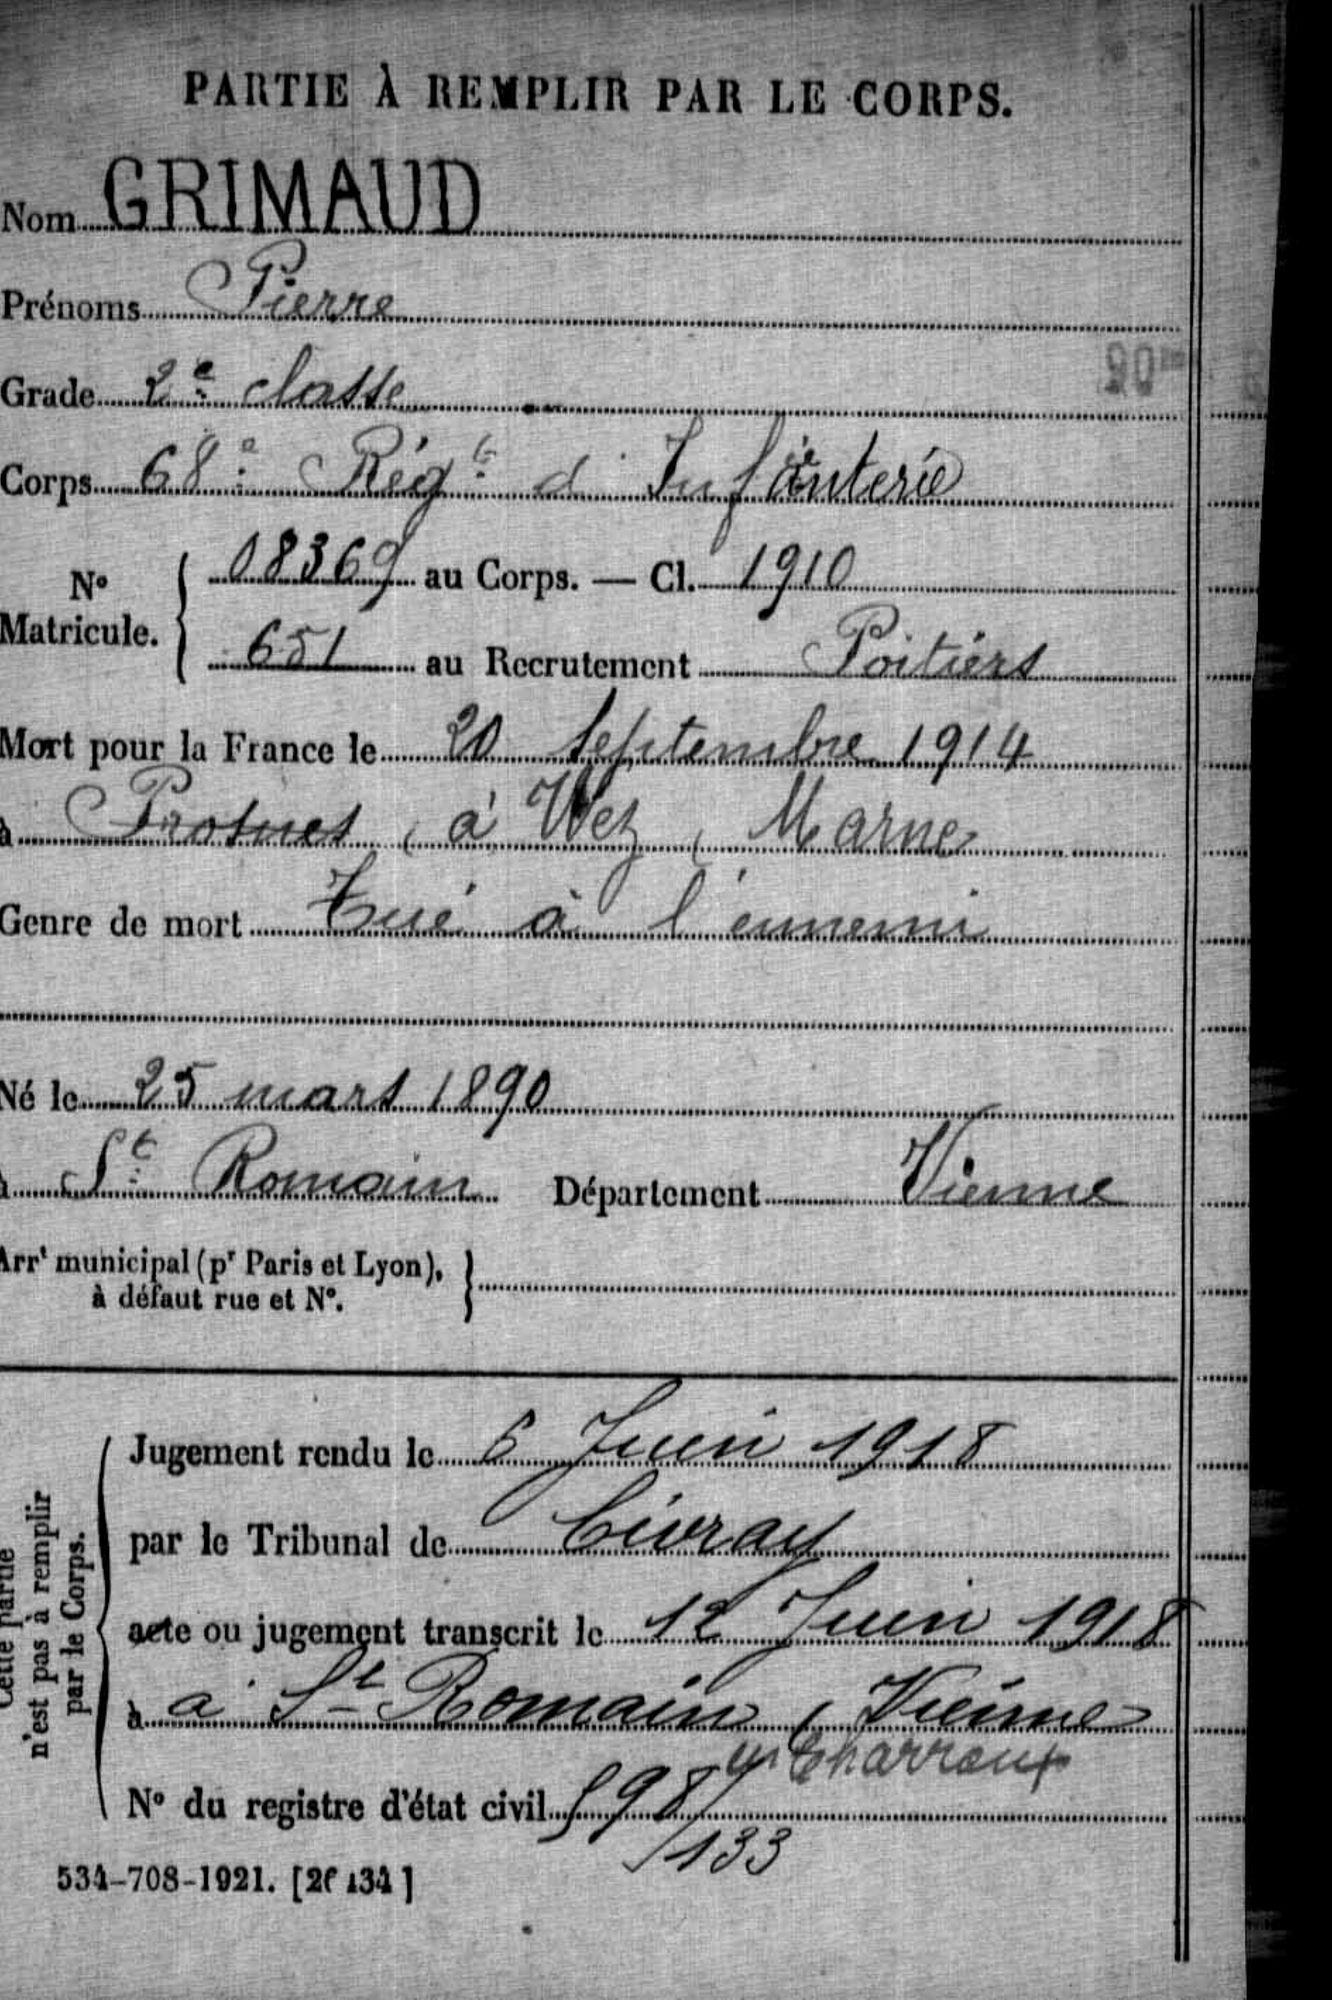 PARTIE À REMPLIR PAR LE CORPS.
Nom GRIMAUD
Prénoms Pierre
Grade 2e classe
Corps 68e Régt d'Infanterie
No Matricule. { 08369 au Corps. — Cl. 1910
651 au Recrutement Poitiers
Mort pour la France le 20 Septembre 1914
à Prosnes, à Wez, Marne
Genre de mort Tué à l'ennemi
Né le 25 mars 1890
à St Romain Département Vienne
Arrt municipal (pr Paris et Lyon), }
à défaut rue et No.
Cette partie
n'est pas à remplir
par le Corps.
Jugement rendu le 6 Juin 1918
par le Tribunal de Civray
acte ou jugement transcrit le 12 Juin 1918
à à St Romain, Vienne
Charroux
No du registre d'état civil 598/133
534-708-1921. [26434]